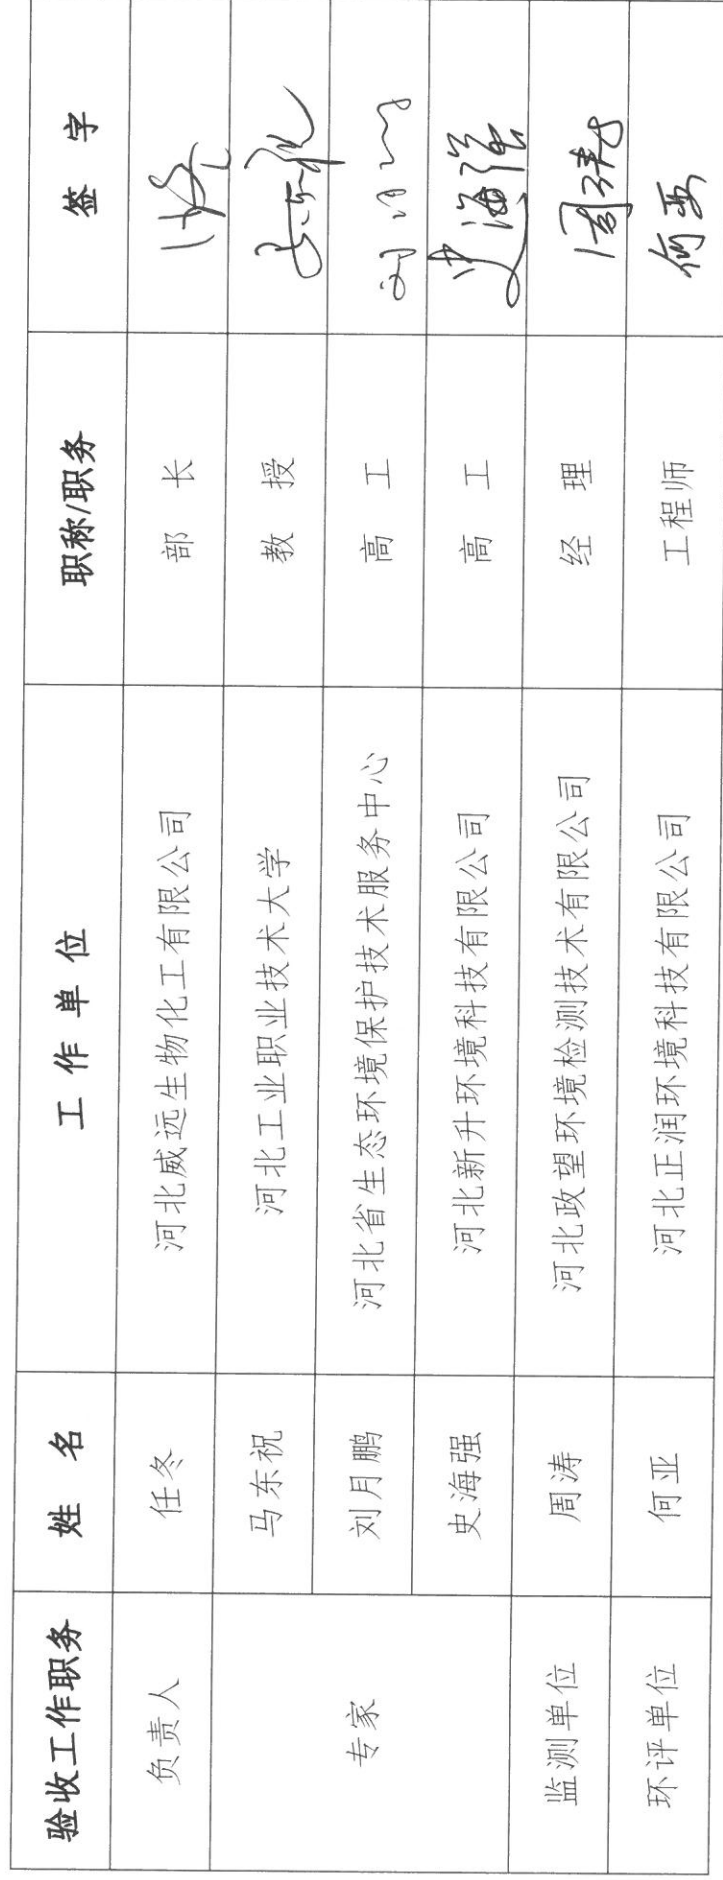 验收工作职务 姓 名 工 作 单 位 职称/职务 签 字
负责人 任冬 河北威远生物化工有限公司 部 长
专家 马东祝 河北工业职业技术大学 教 授
刘月鹏 河北省生态环境保护技术服务中心 高 工 刘月鹏
史海强 河北新升环境科技有限公司 高 工 史海强
监测单位 周涛 河北政望环境检测技术有限公司 经 理 周涛
环评单位 何亚 河北正润环境科技有限公司 工程师 何亚